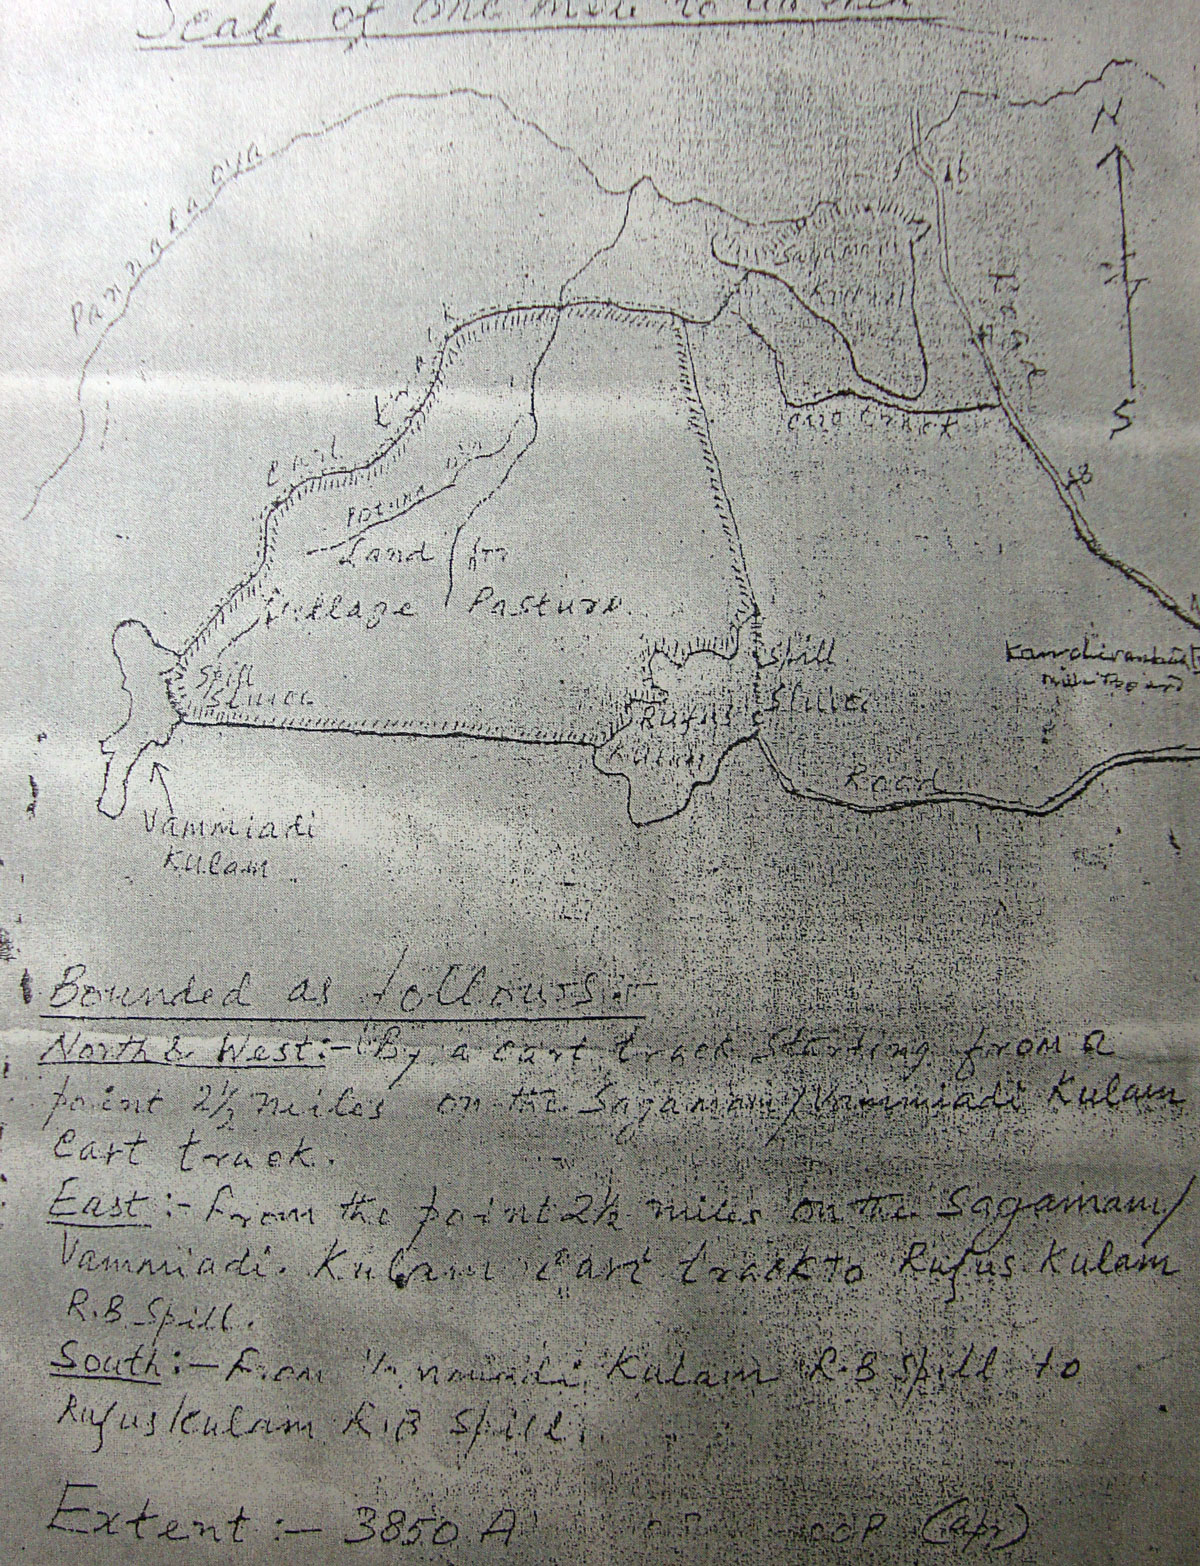 Scale of one mile to an inch
Pannala Oya
N
S
16
Road
18
Sagamam
Kulam
Cart track
Cart track
Potuna
Land for
Village Pasture
Spill
Sluice
Spill
Sluice
Rufus
Kulam
Road
Vammiadi
Kulam
Bounded as follows:-
North & West:- By a cart track starting from a
point 2½ miles on the Sagamam/Vammiadi Kulam
Cart track.
East:- From the point 2½ miles on the Sagamam/
Vammiadi. Kulam Cart track to Rufus Kulam
R.B Spill.
South:- From Vammiadi Kulam R.B Spill to
Rufus Kulam R.B Spill.
Extent:- 3850 A OOP (apr)